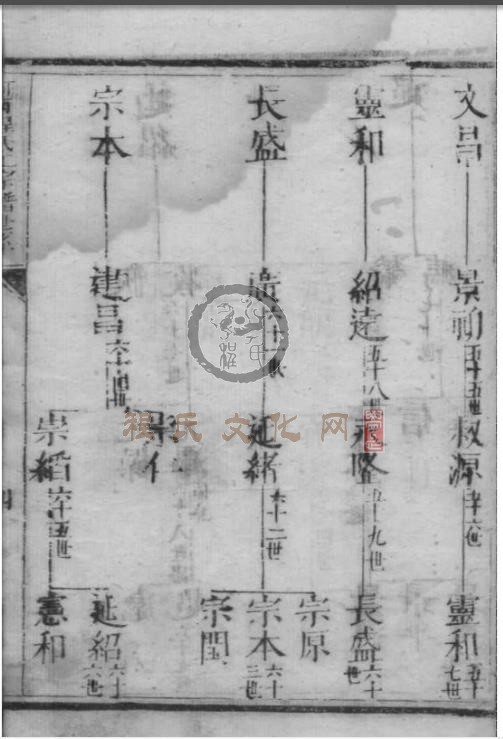 文昌
景
五十五世
叔源
五十六世
靈和
五十七世
靈和
紹遠
五十八世
永隆
五十九世
長盛
六十世
長盛
六十一世
延緒
六十二世
宗原
宗本
六十三世
宗閏
宗本
建昌
六十四世
景仁
崇縚
六十五世
延紹
六十六世
憲和
四
程氏文化网